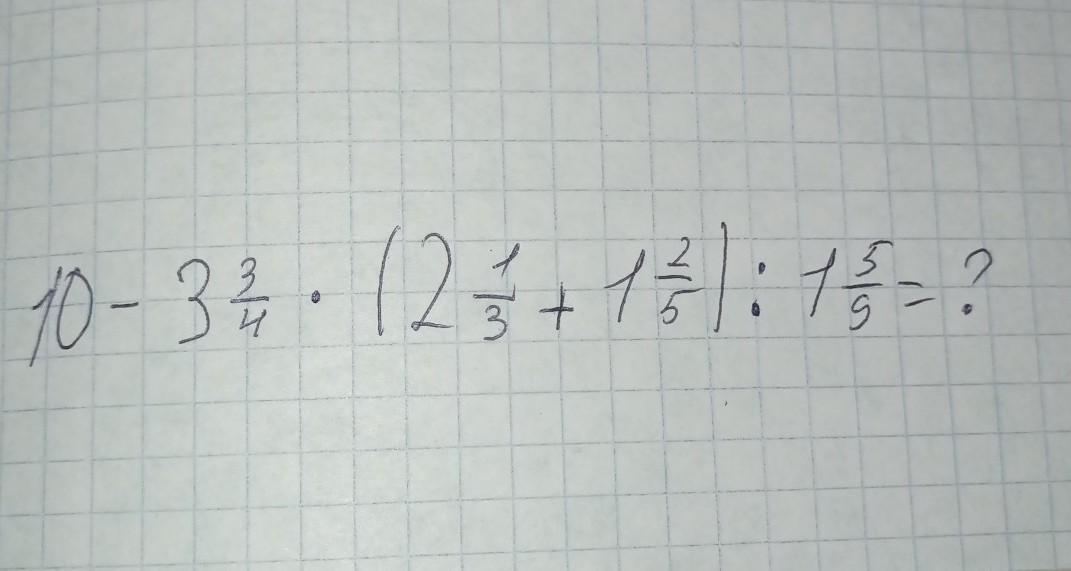 10 - 3 3/4 · (2 1/3 + 1 2/5) : 1 5/9 = ?